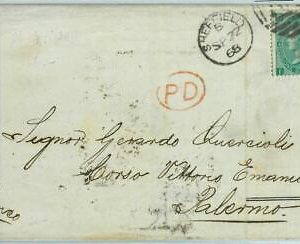 SHEFFIELD
SP 22
68
PD
Signor Gerardo Quercioli
Corso Vittorio Emanu
Palermo